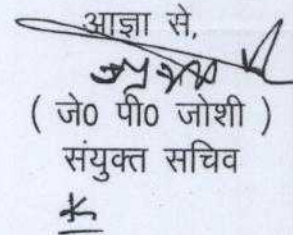 आज्ञा से,
( जे0 पी0 जोशी )
संयुक्त सचिव